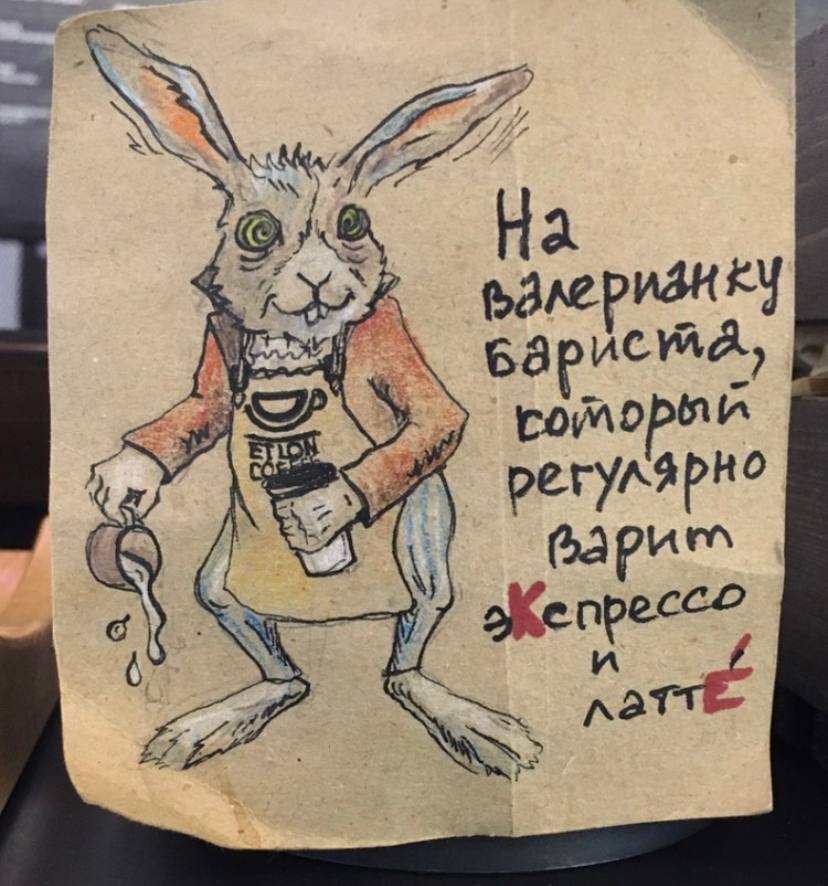 На
валерианку
бариста,
который
регулярно
варит
эКспрессо
и
латтÉ
ETLON
COFFEE